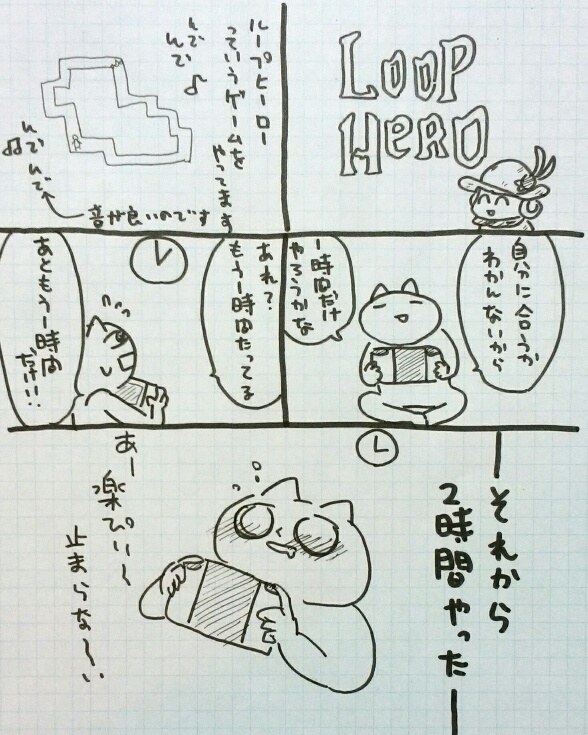 LOOP
HERO
ループヒーロー
っていうゲームを
やってます
んで
んで♪
んで
んで♫
音が良いのです
自分に合うか
わかんないから
一時間だけ
やろうかな
あれ?
もう一時間たってる
あともう一時間
だけ!!
それから
2時間やった
あー
楽ぴぃ〜
止まらな〜い